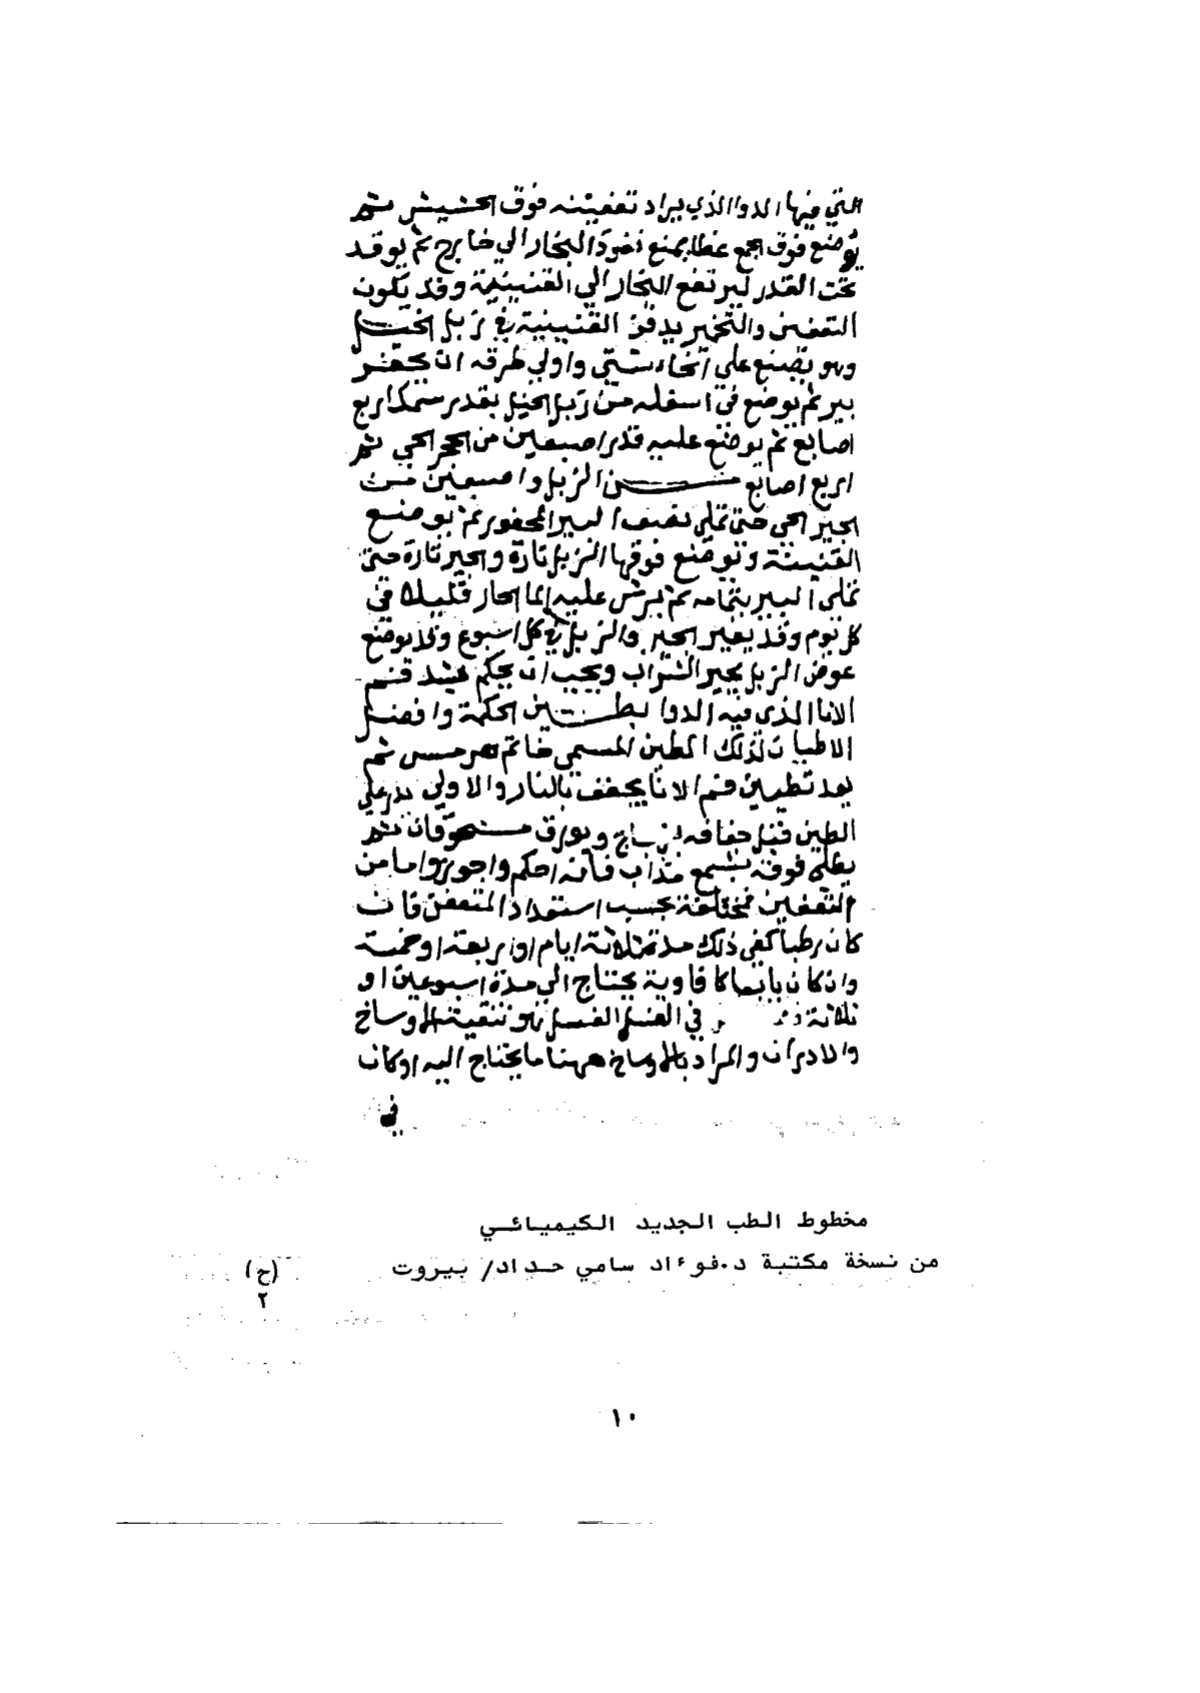 التي فيها الدوا الذي يراد تعفينه فوق الحشيش ثم
يوضع فوق الجمع غطا يمنع نفوذ البخار الي خارج ثم يوقد
تحت القدر ليرتفع البخار الي القنينة وقد يكون
التعفين والتخمير بدفن القنينية في زبل الخيل
وهو يصنع علي انحاء شتي واولي طرقه ان يحفر
بير ثم يوضع في اسفله من زبل الخيل بقدر سمك اربع
اصابع ثم يوضع عليه قدر اصبعين من الحجر الحي ثم
اربع اصابع من الزبل واصبعين من
الجير الحي حتى تملي نصف البير المحفور ثم يوضع
القنينة ويوضع فوقها الزبل تارة والجير تارة حتى
تملي البير بتمامه ثم يرش عليه الما الحار قليلا في
كل يوم وقد يغير الجير والزبل في كل اسبوع وقد يوضع
عوض الزبل بجير الشراب ويجب ان يحكم شد فم
الانا الذي فيه الدوا بطين الحكمة وافضل
الاطيان لذلك الطين المسمي خاتم هرمس ثم
بعد تطيين فم الانا يجفف بالنار والاولي يذر علي
الطين قبل جفافه زجاج وبورق مسحوقان ثم
يطلي فوقه بشمع مذاب فانه احكم واجود واما من
التعفين مختلفة بحسب استعداد المتعفن فان
كان رطبا كفى ذلك مدة ثلاثة ايام او اربعة او خمسة
وان كان يابسا كافاوية يحتاج الى مدة اسبوعين او
ثلاثة في الغسل الغسل هو تنقية الاوساخ
والادران والمراد بالاوساخ ههنا ما يحتاج اليه او كان
في
مخطوط الطب الجديد الكيميائي
من نسخة مكتبة د.فوءاد سامي حداد/ بيروت (ح)
٢
١٠